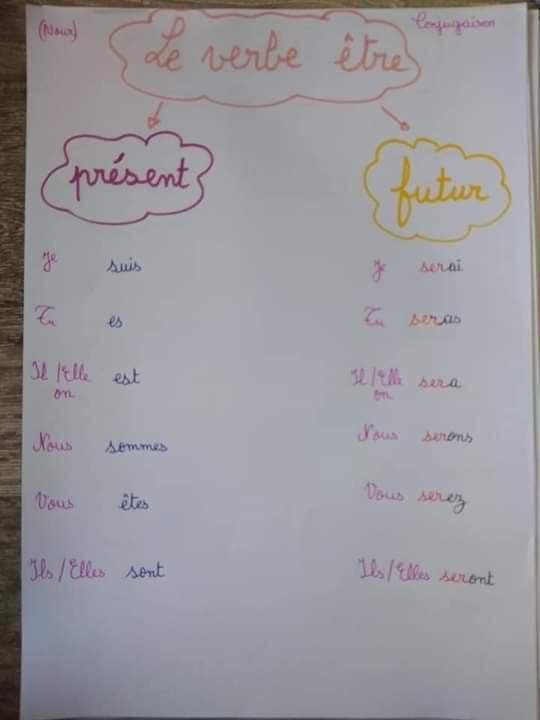 (Nour)
Conjugaison
Le verbe être
présent
futur
Je suis
Tu es
Il/Elle est
on
Nous sommes
Vous êtes
Ils/Elles sont
Je serai
Tu seras
Il/Elle sera
on
Nous serons
Vous serez
Ils/Elles seront